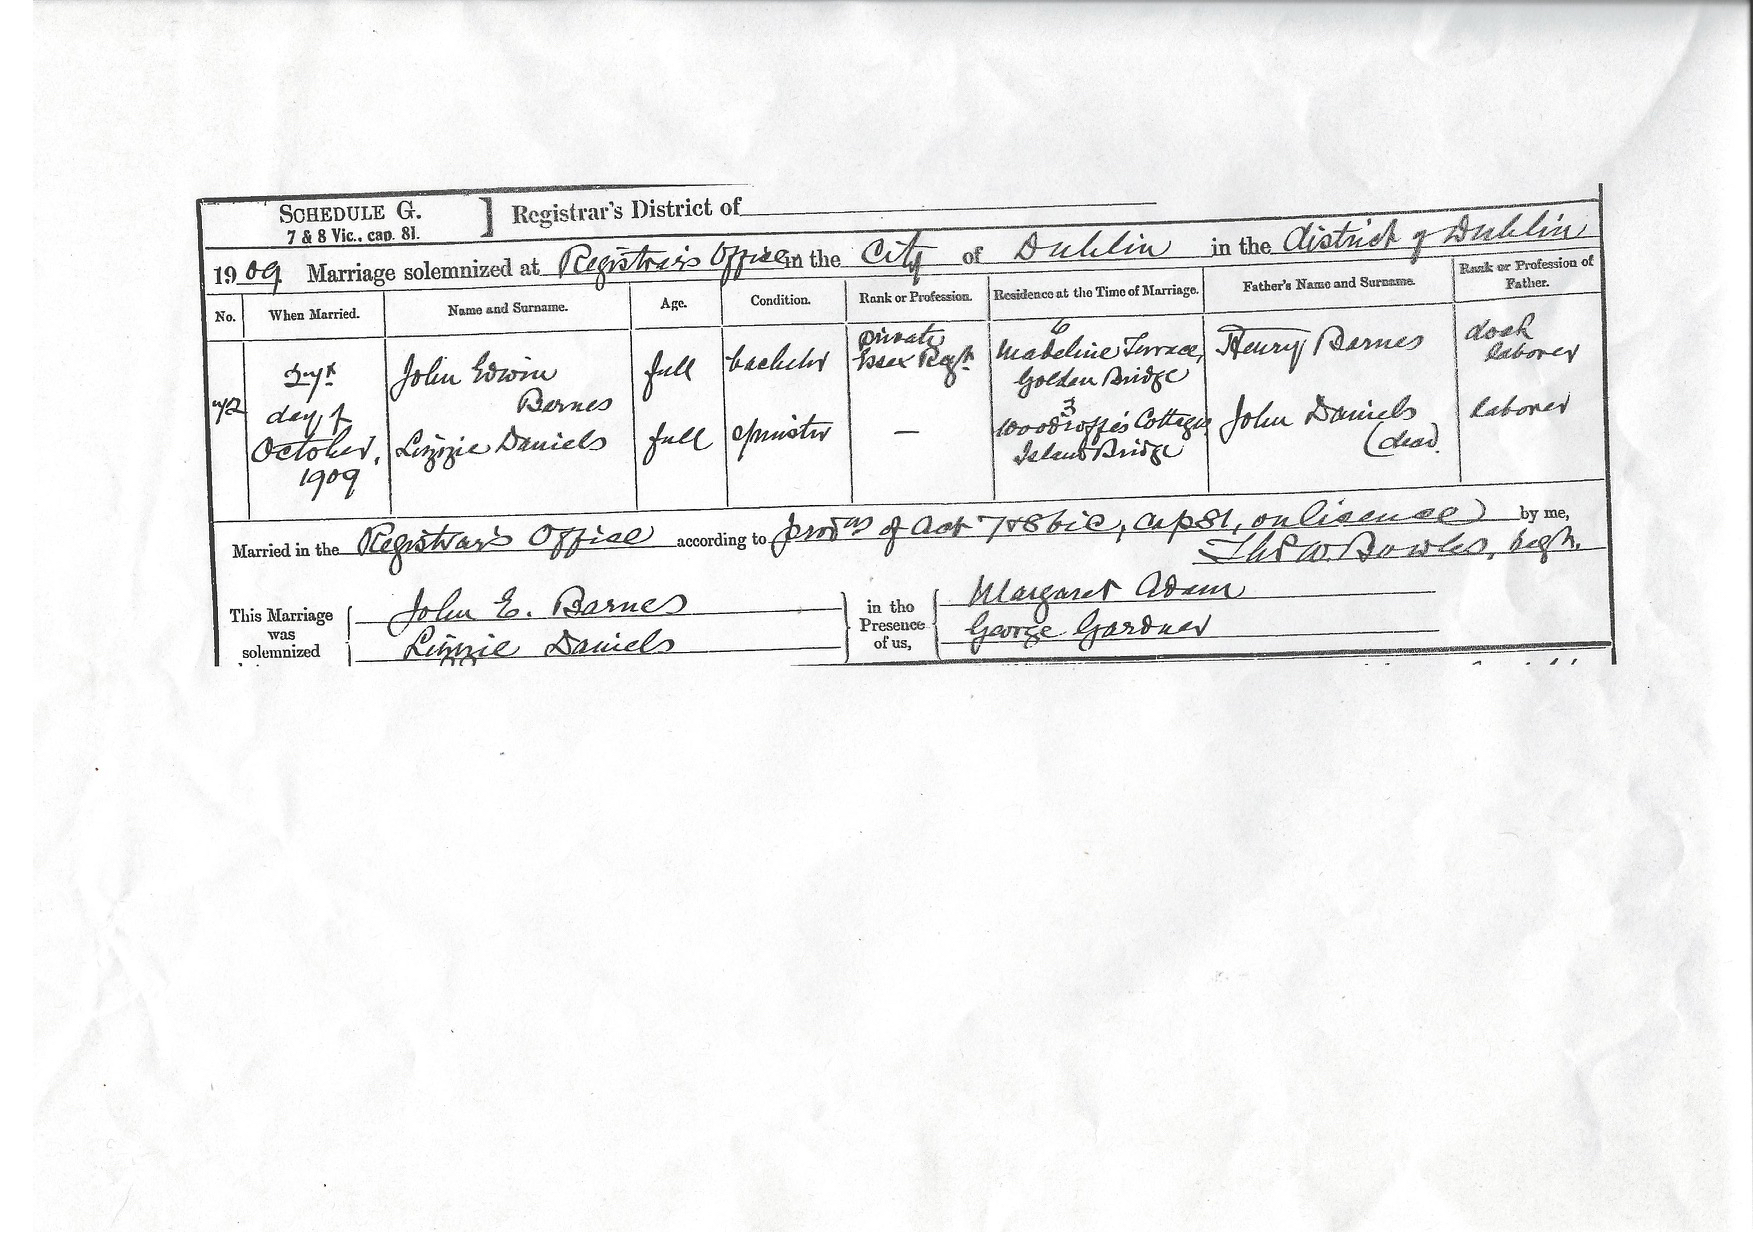 SCHEDULE G. ] Registrar's District of
7 & 8 Vic., cap. 81.
1909. Marriage solemnized at Registrar's Office in the City of Dublin in the district of Dublin
No. When Married. Name and Surname. Age. Condition. Rank or Profession. Residence at the Time of Marriage. Father's Name and Surname. Rank or Profession of Father.
day of October, 1909
John Edwin Barnes full bachelor private Essex Regt. 6 Madeline Terrace, Golden Bridge Henry Barnes dock laborer
Lizzie Daniels full spinster — 3 Woodroffe's Cottages Island Bridge John Daniels (dead) laborer
Married in the Registrar's Office according to provns of Act 7 & 8 Vic, cap 81, on lisence by me,
Thos W. Bowles, regr.
This Marriage was solemnized
John E. Barnes
Lizzie Daniels
in the Presence of us,
Margaret Adam
George Gardner